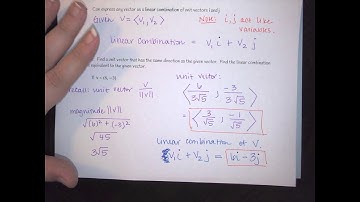 Can express any vector as a linear combination of unit vectors i and j
Given V = ⟨V₁, V₂⟩
Note: i, j act like variables.
linear combination = V₁ i + V₂ j
Find a unit vector that has the same direction as the given vector. Find the linear combination
equivalent to the given vector.
V = <6, -3>
recall unit vector V/||V||
magnitude ||V||
√(6)² + (-3)²
√45
3√5
unit vector:
⟨6/3√5, -3/3√5⟩
= ⟨2/√5, -1/√5⟩
linear combination of V.
V₁i + V₂j = 6i - 3j